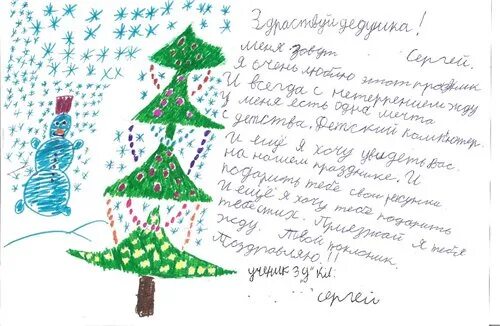 Здраствуй дедушка!
меня зовут Сергей.
Я очень люблю этот праздник
И всегда с нетерпением жду
У меня есть одна мечта
с детства. Детский компютер.
И ещё я хочу увидеть вас
на нашем празднике. И
подарить тебе свои рисунки
И ещё я хочу тебе подарить
тебе стих. Приезжай я тебя
жду. Твой поклоник.
Поздравляю!!
ученик 3 "У" кл.
Сергей